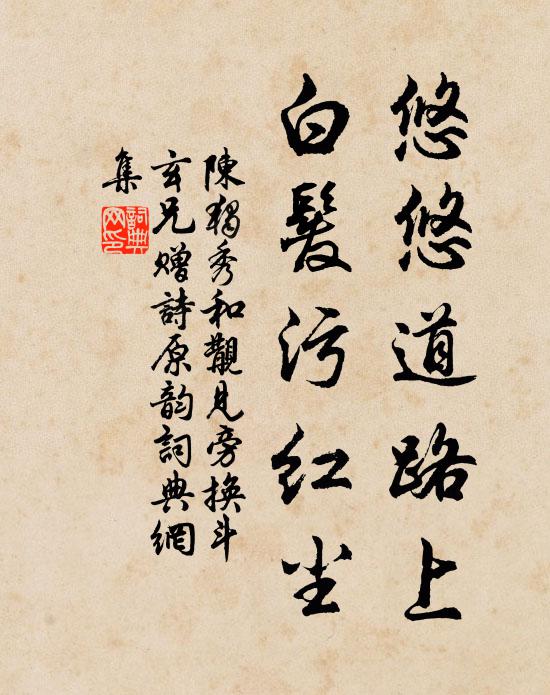 悠悠道路上
白髮污红尘
陳獨秀和覯見旁換斗
玄兄贈詩原韵詞典網
集
詞典网印